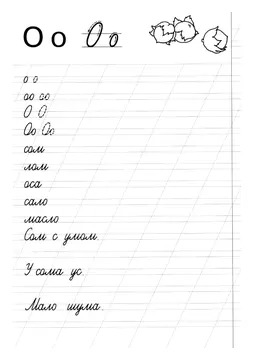 О о О о
о о
оо оо
О О
Оо Оо
сом
лом
оса
сало
масло
Сом с усом.
У сома ус.
Мало шума.